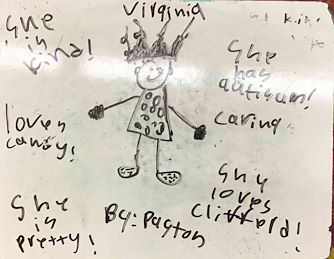 Virginia
she
is
kind!
She
has
autisum!
caring
loves
candy!
She
is
pretty!
By: Payton
She
loves
Clifford!